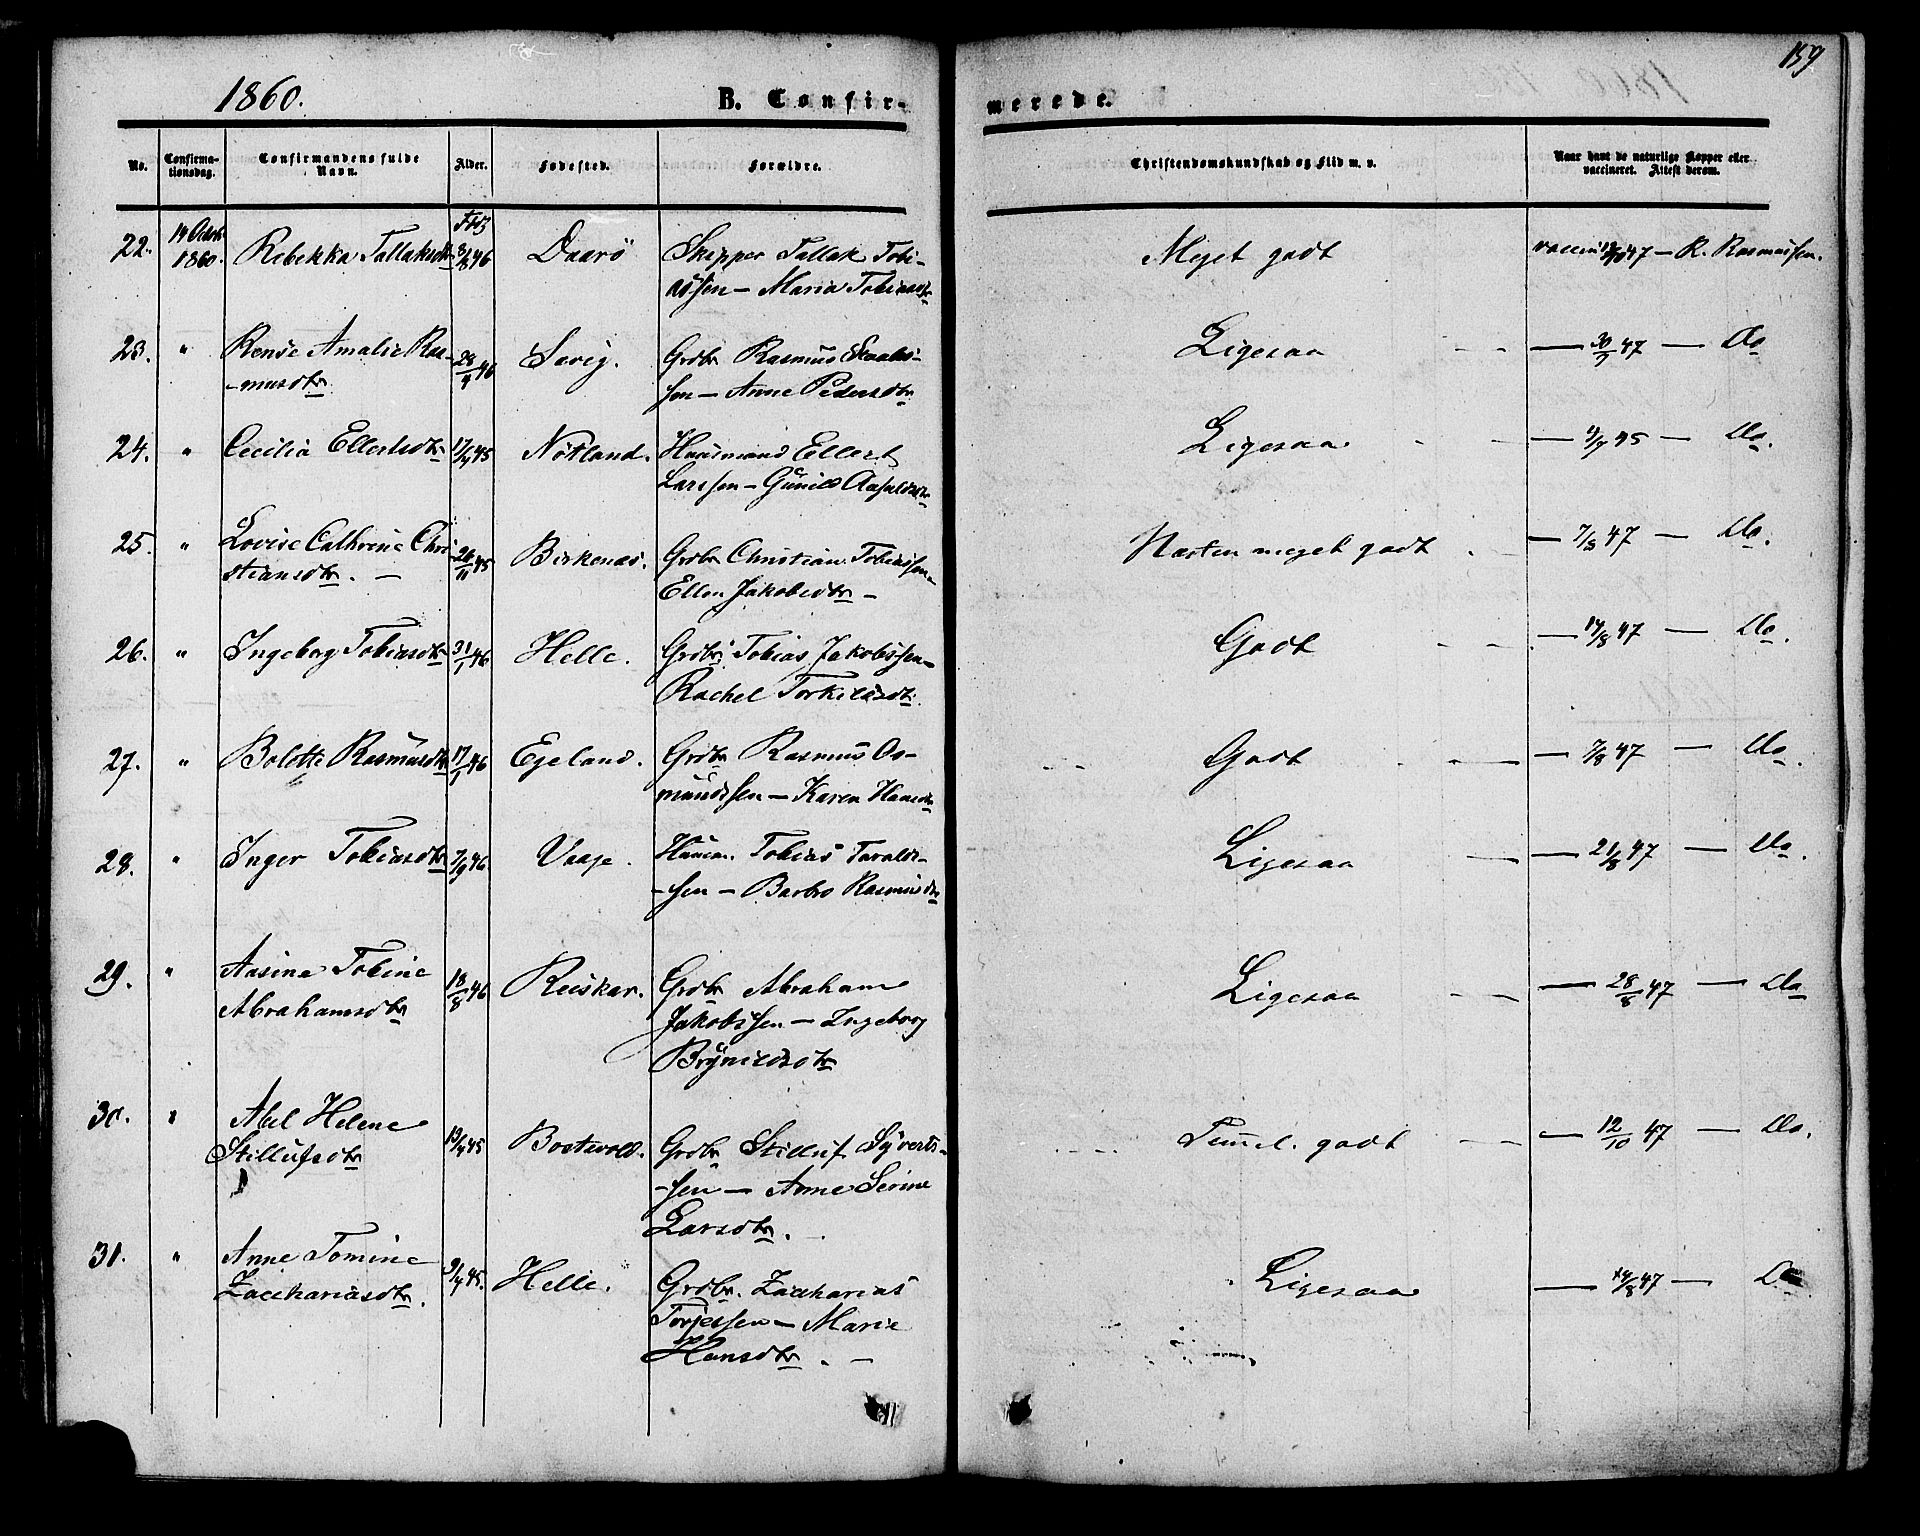 159
1860.
B. Confir-
merede.
No.
Confirma-
tionsdag.
Confirmandens fulde
Navn.
Alder.
Fødested.
Forældre.
Christendomskundskab og Flid m. v.
Naar havt de naturlige Kopper eller
vaccineret. Attest derom.
22. 14 Octob 1860. Rebekka Tallaksdtr 46 Daarö Skipper Tallak Tobi- Meget godt vaccin 47 — R. Rasmussen.
assen — Maria Tobiasdtr
23. " Rense Amalie Ras- 28/4 46 Servig. Grdbr Rasmus Ligesaa — 30/9 47 — Do
-musdtr. sen — Anne Pedersdtr
24. " Cecilia Ellertsdtr 17/4 45 Nötland. Huusmand Ellert Ligesaa — 4/7 45 — Do.
Larssen — Gunild
25. " Lovise Cathrine Chri 26/11 45 Birkenas. Grdbr Christian Tobiassen — Næsten meget godt — 7/3 47 — Do.
stiansdtr. — Ellen Jakobsdtr —
26. " Ingeborg Tobiasdtr 31/1 46 Helle. Grdbr Tobias Jakobssen — Godt — 14/8 47 — Do.
Rachel Torkildsdtr.
27. " Bolette Rasmusdtr 17/1 46 Egeland. Grdbr Rasmus Os- Godt — 7/8 47 — Do.
mundssen — Karen Hansdtr
28. " Inger Tobiasdtr 7/9 46 Vaaje. Huusm. Tobias Taralds- Ligesaa — 21/8 47 — Do.
-sen — Barbro Rasmusdtr
29. " Aasine Tobine 18/8 46 Reiskar. Grdbr Abraham Ligesaa — 28/8 47 — Do
Abrahamsdtr Jakobssen — Ingeborg
Brynildsdtr
30. " Abel Helene 13/4 45 Bostvold. Grdbr Stilluf Syverts- Temmel. godt — 12/10 47 — Do.
Stillufsdtr -sen — Anne Serine
Larsdtr.
31. " Anne Tomine 9/4 45. Helle. Grdbr. Zacharias Ligesaa — 14/8 47 — Do
Zachariasdtr. Torjessen — Marie
Hansdtr. —